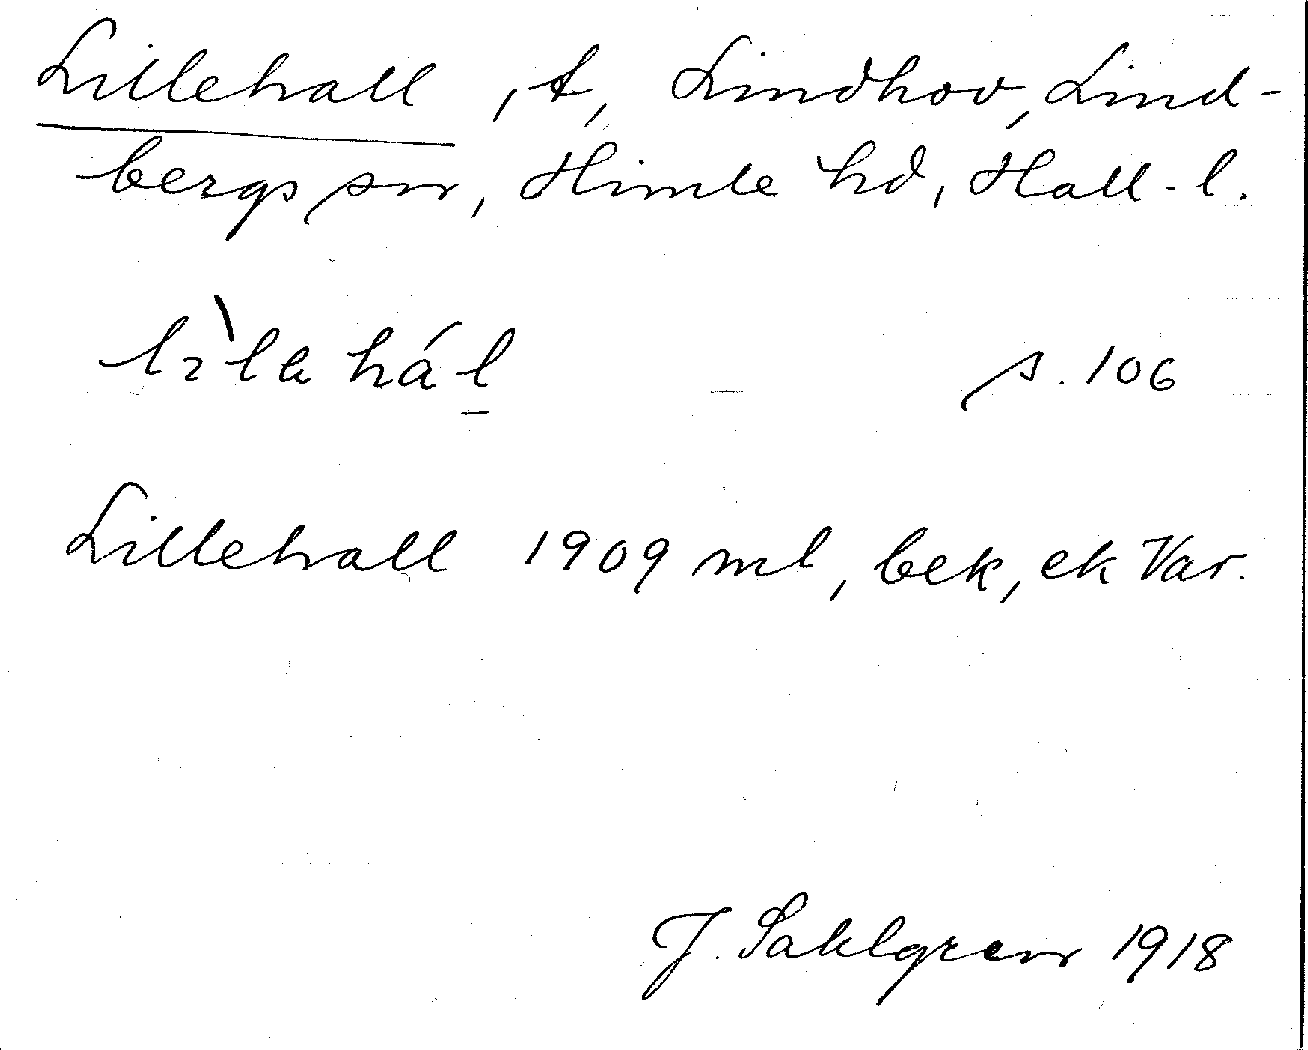 Lillehall, t, Lindhov, Lind-
bergs sn, Himle hd, Hall. l.
lìla hál s. 106
Lillehall 1909 ml, bek, ek Var.
J. Sahlgren 1918